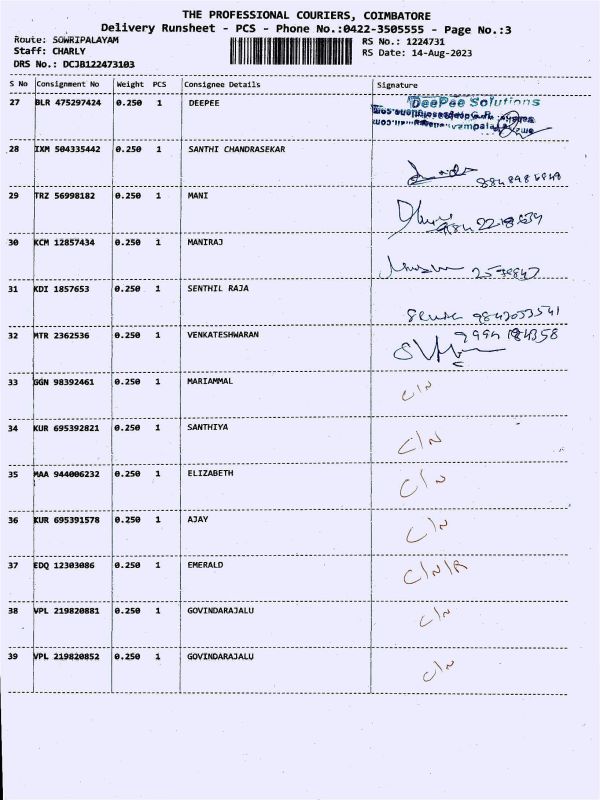 THE PROFESSIONAL COURIERS, COIMBATORE
Delivery Runsheet - PCS - Phone No.:0422-3505555 - Page No.:3
Route: SOWRIPALAYAM RS No.: 1224731
Staff: CHARLY RS Date: 14-Aug-2023
DRS No.: DCJB122473103
S No Consignment No Weight PCS Consignee Details Signature
27 BLR 475297424 0.250 1 DEEPEE DeePee Solutions
28 IXM 504335442 0.250 1 SANTHI CHANDRASEKAR
29 TRZ 56998182 0.250 1 MANI
30 KCM 12857434 0.250 1 MANIRAJ
31 KDI 1857653 0.250 1 SENTHIL RAJA
32 MTR 2362536 0.250 1 VENKATESHWARAN
33 GGN 98392461 0.250 1 MARIAMMAL C/N
34 KUR 695392821 0.250 1 SANTHIYA C/N
35 MAA 944006232 0.250 1 ELIZABETH C/N
36 KUR 695391578 0.250 1 AJAY C/N
37 EDQ 12303086 0.250 1 EMERALD C/N/R
38 VPL 219820881 0.250 1 GOVINDARAJALU C/N
39 VPL 219820852 0.250 1 GOVINDARAJALU C/N